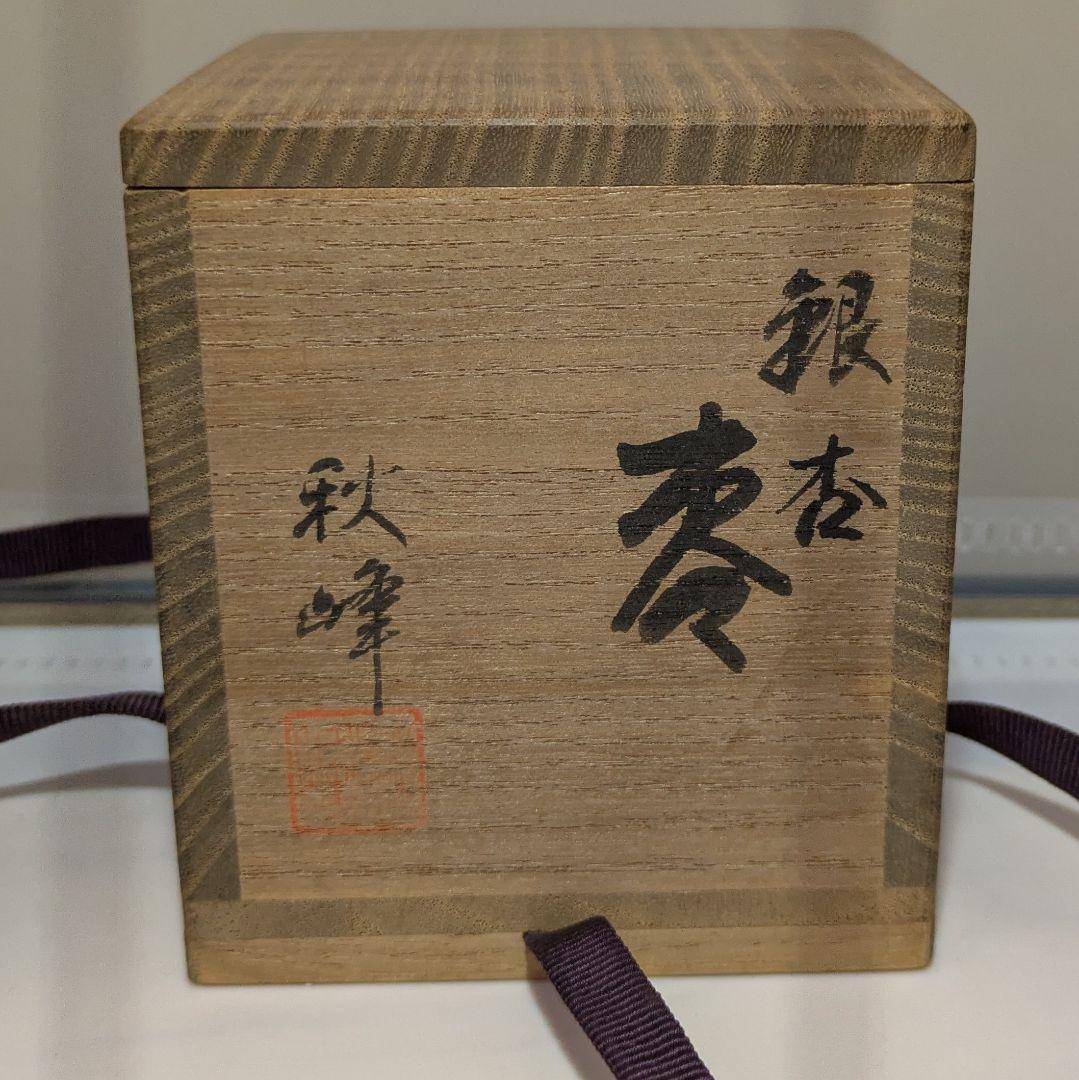 銀杏
棗
秋峰